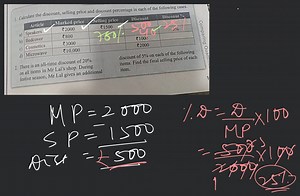 Calculate the discount, selling price and discount percentage in each of the following cases.
Article Marked price Selling price Discount Discount %
a) Speakers ₹2000 ₹1500 500 25%
b) ₹800 780
c) Cosmetics ₹2000 ₹100
d) Microwave ₹10,000 ₹2000
2. There is an all-time discount of 20%
on all items in Mr Lal's shop. During
festive season, Mr Lal gives an additional
discount of 5% on each of the following
items. Find the final selling price of each
item.
MP = 2000
SP = 1500
Disc = ₹500
% D = D/MP × 100
= 500/2000 × 100
1
25%